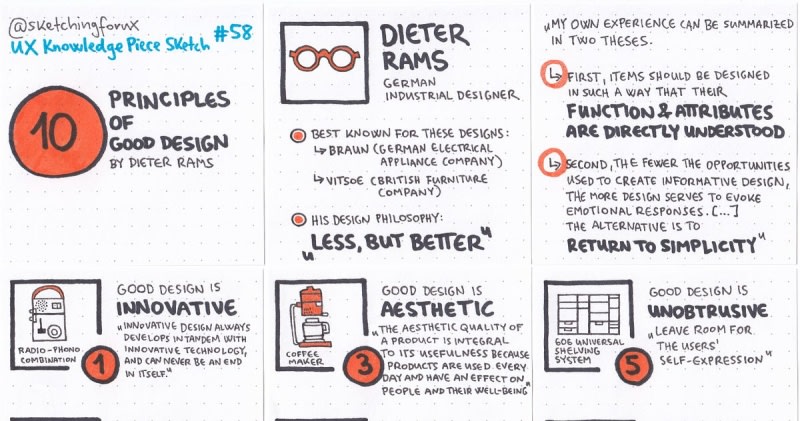 @sketchingforux
UX Knowledge Piece Sketch #58
10
PRINCIPLES
OF
GOOD DESIGN
BY DIETER RAMS
DIETER
RAMS
GERMAN
INDUSTRIAL DESIGNER
BEST KNOWN FOR THESE DESIGNS:
↳ BRAUN (GERMAN ELECTRICAL
APPLIANCE COMPANY)
↳ VITSOE (BRITISH FURNITURE
COMPANY)
HIS DESIGN PHILOSOPHY:
„LESS, BUT BETTER"
„MY OWN EXPERIENCE CAN BE SUMMARIZED
IN TWO THESES.
↳ FIRST, ITEMS SHOULD BE DESIGNED
IN SUCH A WAY THAT THEIR
FUNCTION & ATTRIBUTES
ARE DIRECTLY UNDERSTOOD
↳ SECOND, THE FEWER THE OPPORTUNITIES
USED TO CREATE INFORMATIVE DESIGN,
THE MORE DESIGN SERVES TO EVOKE
EMOTIONAL RESPONSES. [...]
THE ALTERNATIVE IS TO
RETURN TO SIMPLICITY"
RADIO-PHONO
COMBINATION
1
GOOD DESIGN IS
INNOVATIVE
„INNOVATIVE DESIGN ALWAYS
DEVELOPS IN TANDEM WITH
INNOVATIVE TECHNOLOGY,
AND CAN NEVER BE AN END
IN ITSELF."
COFFEE
MAKER
3
GOOD DESIGN IS
AESTHETIC
„THE AESTHETIC QUALITY OF
A PRODUCT IS INTEGRAL
TO ITS USEFULNESS BECAUSE
PRODUCTS ARE USED EVERY
DAY AND HAVE AN EFFECT ON
PEOPLE AND THEIR WELL-BEING"
606 UNIVERSAL
SHELVING
SYSTEM
5
GOOD DESIGN IS
UNOBTRUSIVE
„LEAVE ROOM FOR
THE USERS'
SELF-EXPRESSION"